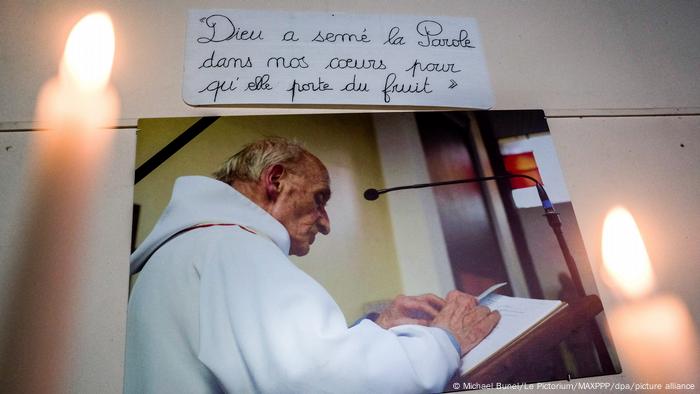 "Dieu a semé la Parole
dans nos cœurs pour
qu'elle porte du fruit »
© Michael Bunel/Le Pictorium/MAXPPP/dpa/picture alliance